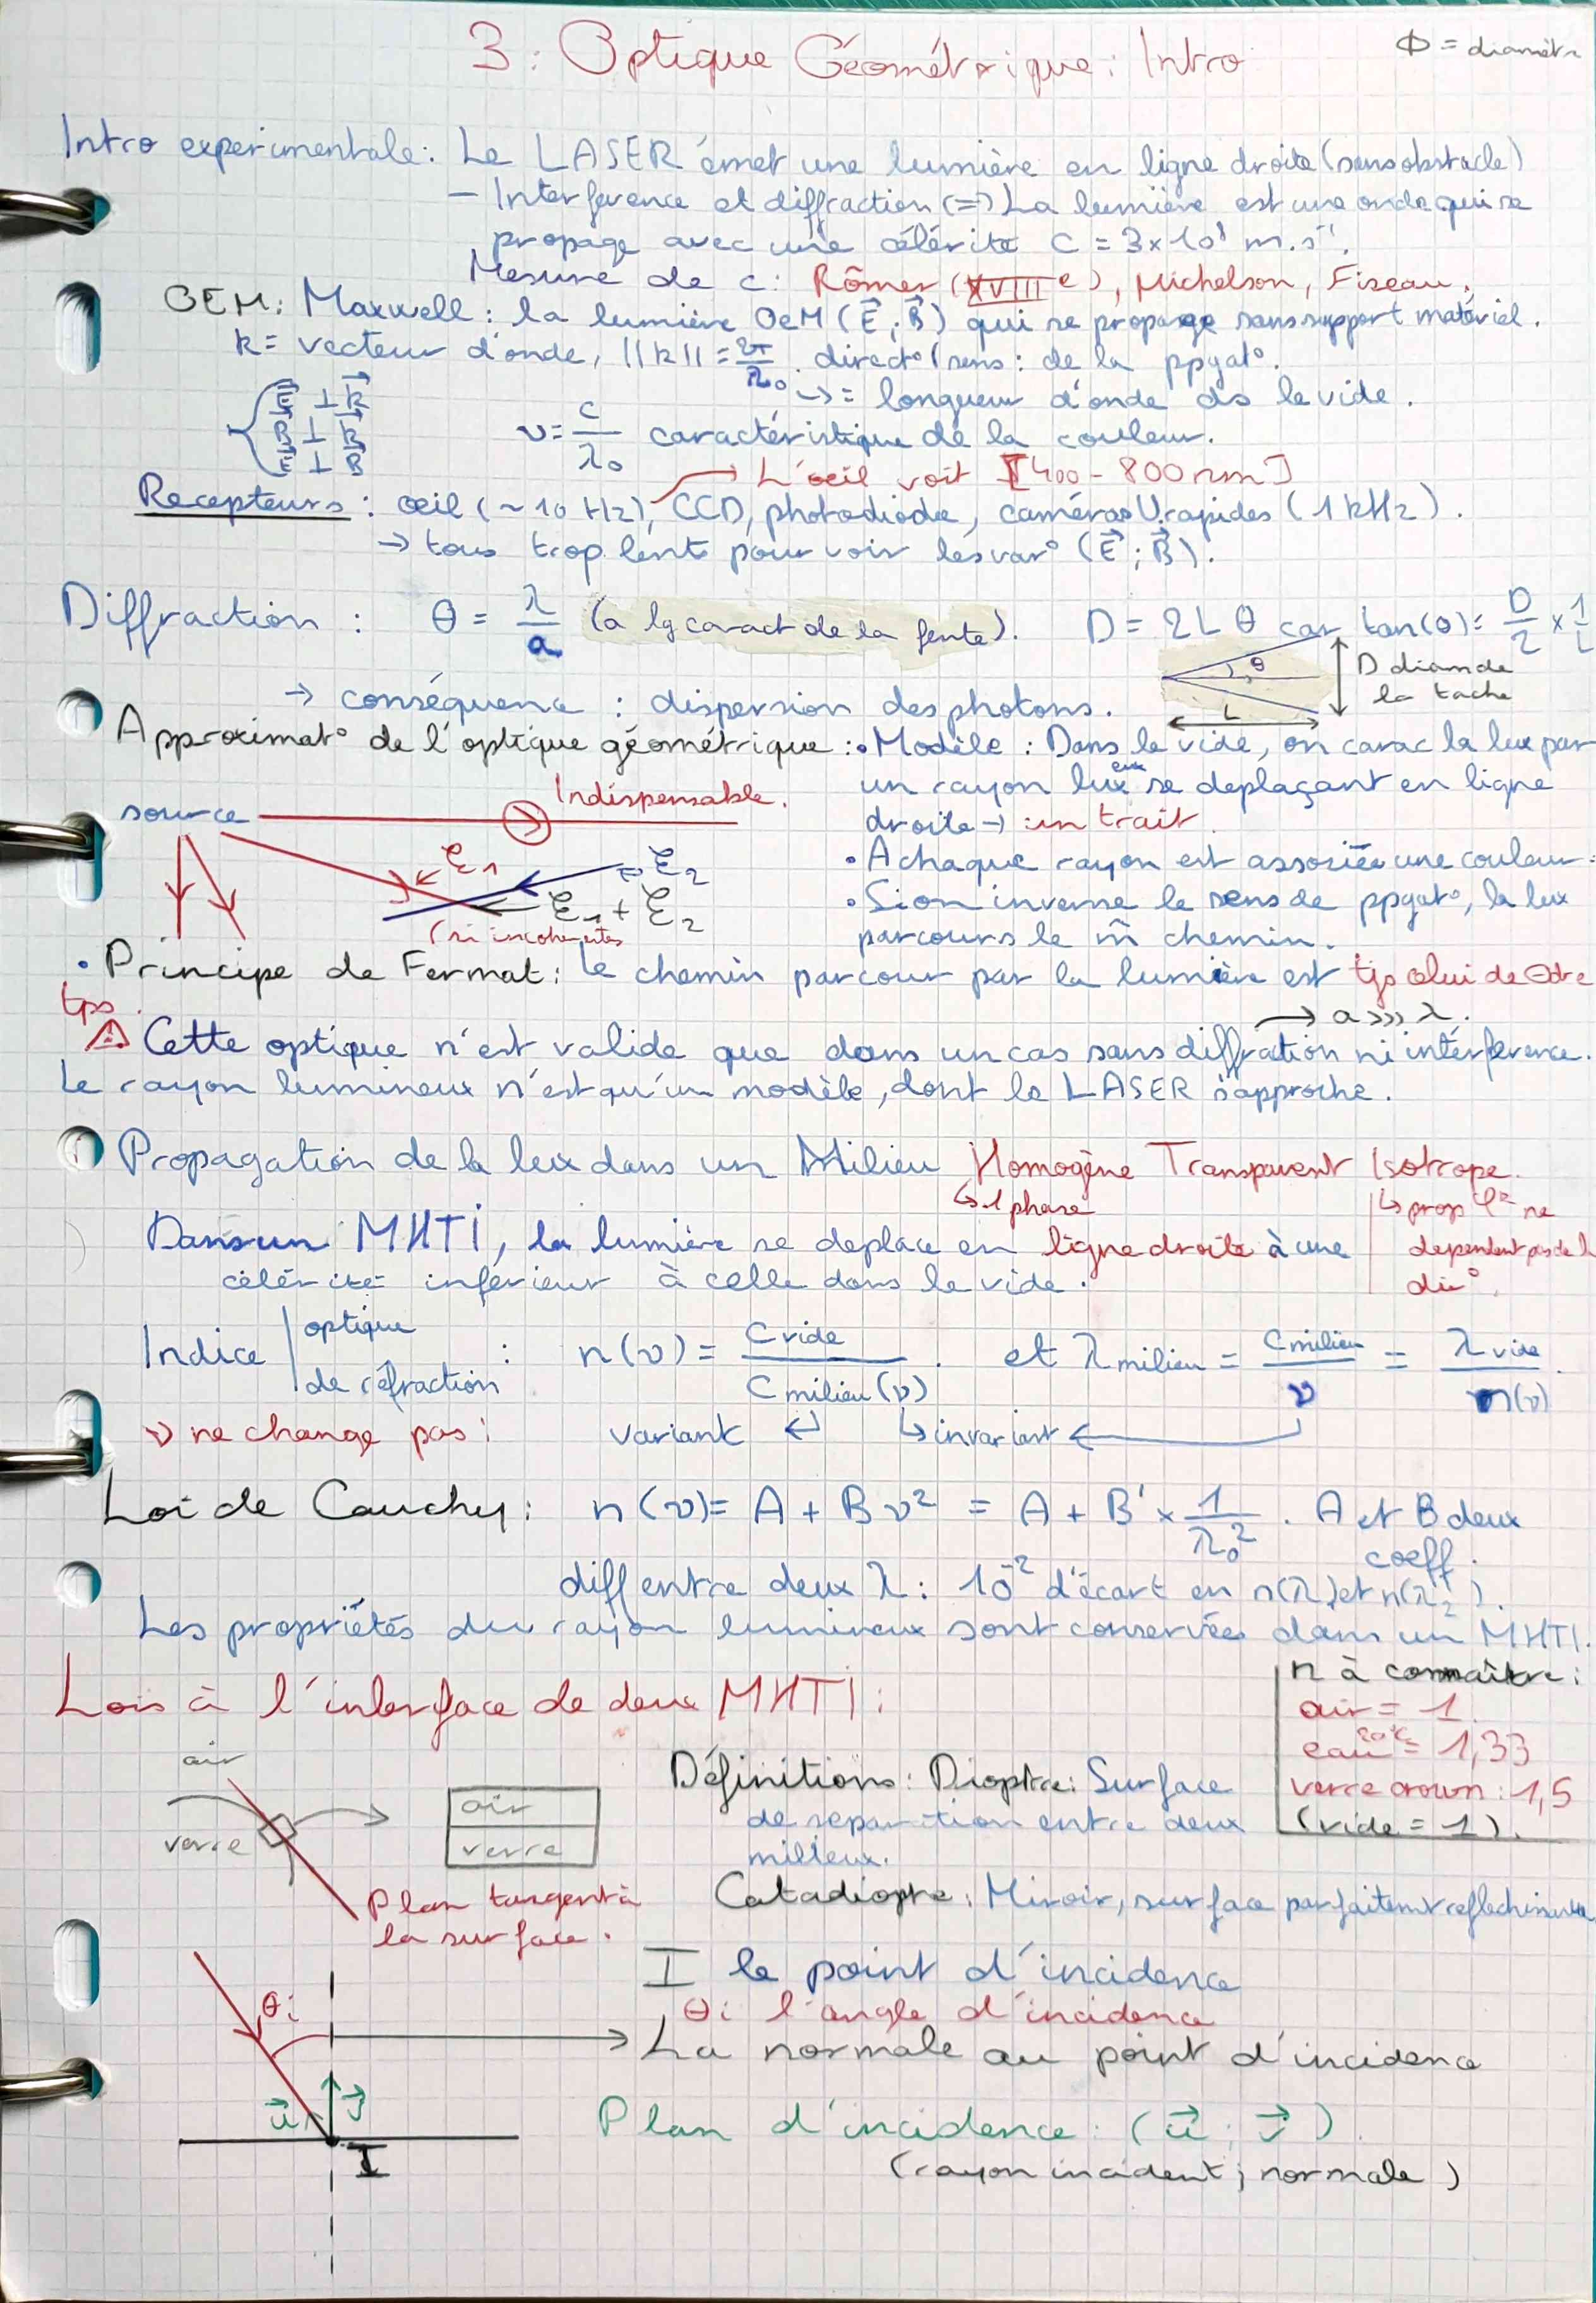 3 : Optique Géométrique : Intro
Φ = diamètr
Intro experimentale : Le LASER émet une lumière en ligne droite (sans obstacle)
– Interference et diffraction (=) La lumière est une onde qui se
propage avec une célérité C = 3×10⁸ m.s⁻¹.
Mesure de c : Rômer (XVIII e), Michelson, Fiseau.
OEM : Maxwell : la lumière OeM (E⃗ ; B⃗) qui se propage sans support matériel.
k = vecteur d'onde, ||k|| = 2π/λ₀. direct° (sens : de la ppgat°.
↳ = longueur d'onde ds le vide.
{ E⃗ ⊥ k⃗
B⃗ ⊥ k⃗
E⃗ ⊥ B⃗
ν = c/λ₀ caractéristique de la couleur.
→ L'oeil voit [400 - 800 nm]
Recepteurs : œil (~ 10 Hz), CCD, photodiode, caméras U.rapides (1 kHz).
→ tous trop lents pour voir les var° (E⃗ ; B⃗).
Diffraction : θ = λ/a (a lg caract de la fente). D = 2L θ car tan(θ) = D/2 × 1/L
θ
D diam de
la tache
L
→ conséquence : dispersion des photons.
Approximat° de l'optique géométrique : • Modèle : Dans le vide, on carac la lux par
un rayon lux eux se deplaçant en ligne
droite → : un trait.
source
Indispensable.
ξ₁
ξ₂
ξ₁ + ξ₂
(si incohérentes
• A chaque rayon est associée une couleur.
• Si on inverse le sens de ppgat°, la lux
parcours le m̃ chemin.
• Principe de Fermat : Le chemin parcour par la lumière est tjs celui de Θdre
tps.
→ a >>> λ.
⚠ Cette optique n'est valide que dans un cas sans diffration ni interference.
Le rayon lumineux n'est qu'un modèle, dont le LASER s'approche.
Propagation de la lux dans un Milieu Homogène Transparent Isotrope.
↳ 1 phase
↳ prop φ² ne
dependent pas de l
dir°.
Dans un MHTI, la lumière se deplace en ligne droite à une
célérité inférieur à celle dans le vide.
Indice | optique
de réfraction : n(ν) = C vide / C milieu (ν) . et λ milieu = C milieu / ν = λ vide / n(ν).
ν ne change pas !
variant ↵ ↳ invariant ←
Loi de Cauchy : n(ν) = A + B ν² = A + B' × 1/λ₀² . A et B deux
coeff.
diff entre deux λ : 10⁻² d'écart en n(λ₁) et n(λ₂).
Les propriétés du rayon lumineux sont conservées dans un MHTI.
Lois à l'interface de deux MHTI :
n à connaître :
air = 1.
eau 20°C = 1,33
verre crown : 1,5
(vide = 1).
air
verre
air
verre
Plan tangent à
la surface.
Définitions : Dioptre : Surface
de separation entre deux
milieux.
Catadioptre : Miroir, surface parfaitemt reflechissante
I le point d'incidence
θi l'angle d'incidence
La normale au point d'incidence
θi
u⃗
v⃗
I
Plan d'incidence : (u⃗ ; v⃗).
(rayon incident ; normale)